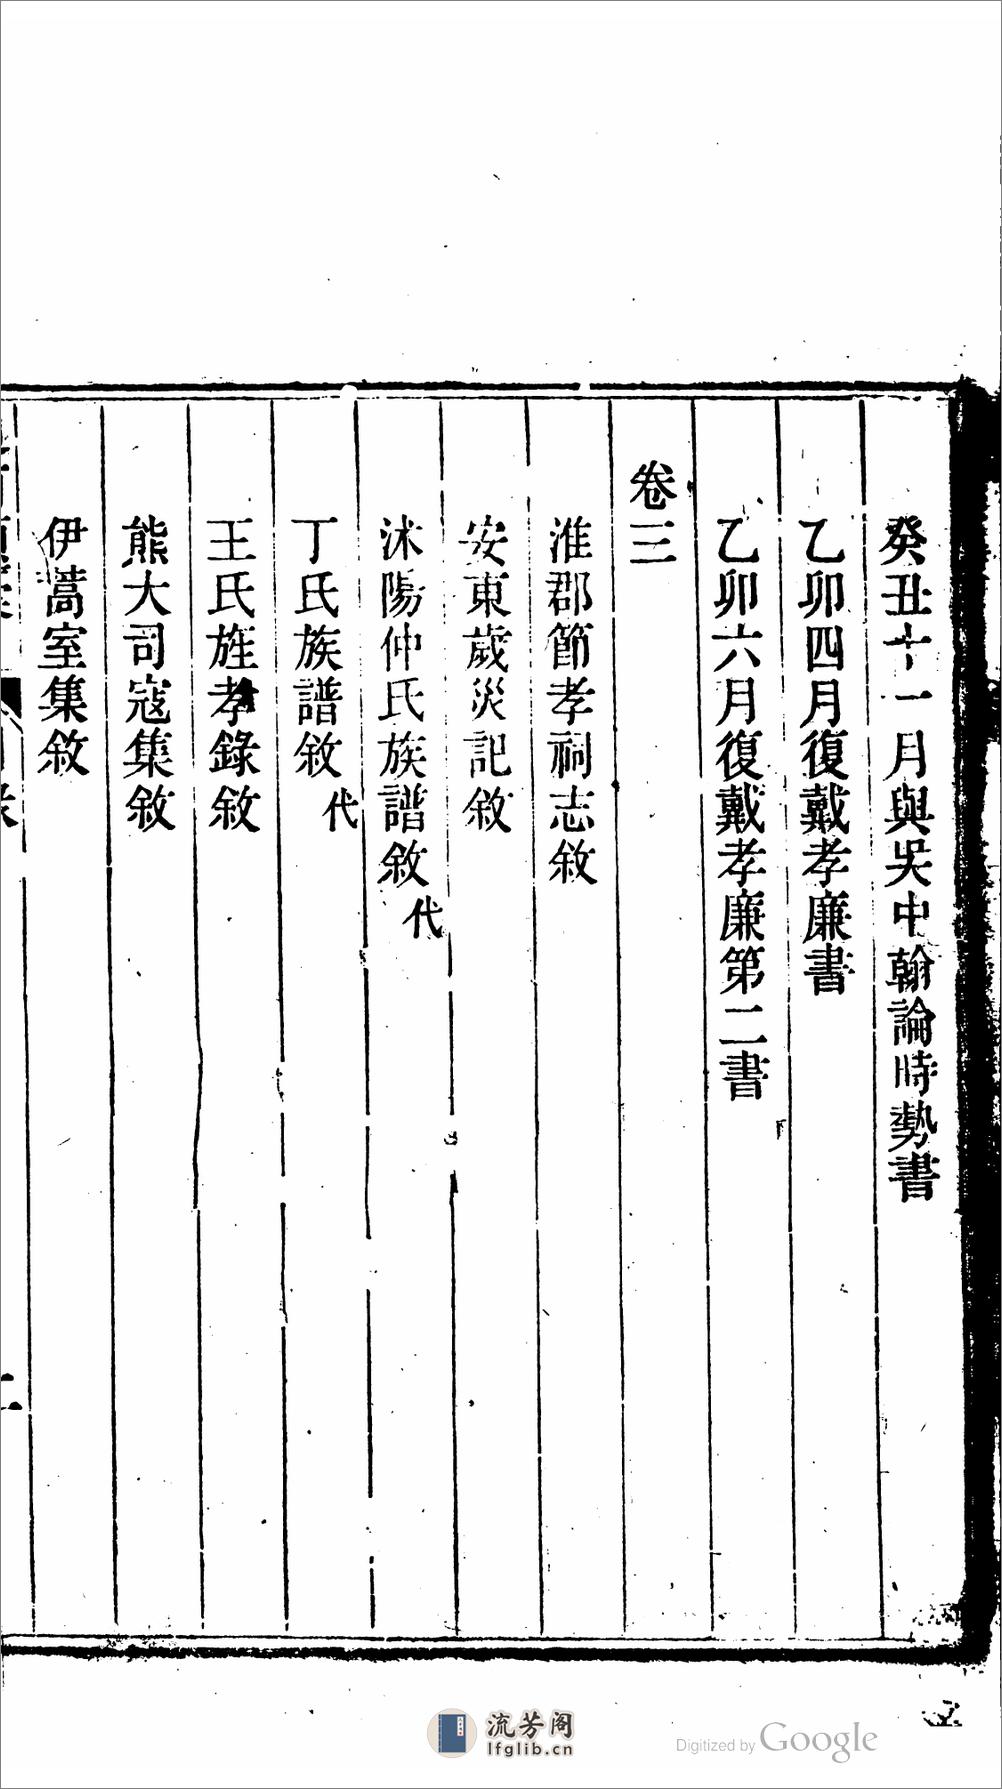 癸丑十一月與吳中翰論時勢書
乙卯四月復戴孝廉書
乙卯六月復戴孝廉第二書
卷三
淮郡節孝祠志敘
安東歲災記敘
沭陽仲氏族譜敘代
丁氏族譜敘代
王氏旌孝錄敘
熊大司寇集敘
伊蒿室集敘
流芳阁
lfglib.cn
Digitized by Google